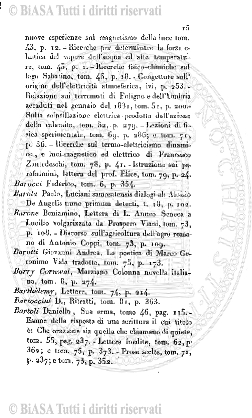 © BiASA Tutti i diritti riservati
15
nuove esperienze sul magnetismo della luce tom.
43. p. 12. - Ricerche per determinare la forza e-
lastica del vapore dell'acqua ad alte temperatu-
re, tom. 45, p. 1. - Ricerche fisico-chimiche sul
lago Sabatino, tom. 45, p. 18. - Congetture sull'
origine dell'elettricità atmosferica, ivi, p. 253. -
Relazione sui terremoti di Foligno e dell'Umbria
accaduti nel gennaio del 1832, tom. 51, p. 200.
Sulla vetrificazione elettrica prodotta dall'azione
della calamita, tom. 52, p. 279. - Lezioni di fi-
sica sperimentale, tom. 69, p. 286; e tom. 71,
p. 56. - Ricerche sul termo-elettricismo dinami-
co, e luci-magnetico ed elettrico di Francesco
Zantedeschi, tom. 78, p. 41. - Istruzione sui pa-
rafulmini, lettera del prof. Elice, tom. 79, p. 24.
Barocci Federico, tom. 6, p. 354.
Barola Paolo, Luciani samosatensis dialogi ab Aloisio
De Angelis nunc primum detecti, t. 18, p. 202.
Barone Beniamino, Lettera di L. Anneo Seneca a
Lucilio volgarizzata da Prospero Viani, tom. 73,
p. 108. - Discorso sull'agricoltura dell'agro roma-
no di Antonio Coppi, tom. 73, p. 109.
Barotti Giovanni Andrea. La poetica di Marco Ge-
ronimo Vida tradotto, tom. 75, p. 173.
Barry Cornwal, Marziano Colonna novella italia-
na, tom. 8, p. 274.
Barthélemy, Lettere, tom. 74, p. 214.
Bartoccini D., Ritratti, tom. 81, p. 363.
Bartoli Daniello, Sue arme, tomo 46, pag. 115. -
Esame della risposta di una scrittura il cui titolo
è: Che orazione sia quella che chiamano di quiete,
tom. 55, pag. 237. - Lettere inedite, tom. 62, p.
362; e tom. 76, p. 373. - Prose scelte, tom. 71,
p. 237; e tom. 73, p. 352.
© BiASA Tutti i diritti riservati